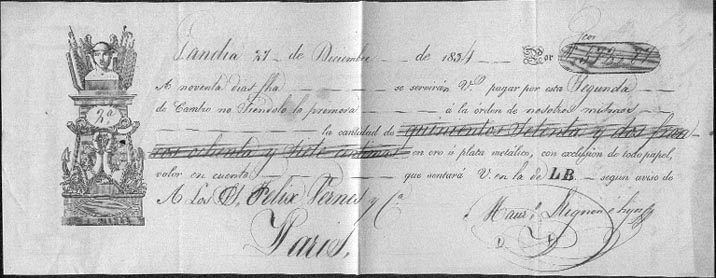 Gandia 27 de Diciembre de 1834 Por
Fcos 572 87
2ª
A noventa dias fha se servirán Vs. pagar por esta Segunda
de Cambio no siendolo la primera á la órden de nosotros mismos
la cantidad de quinientos Setenta y dos fran
cos ochenta y siete centimos en oro ó plata metálico, con exclusion de todo papel,
valor en cuenta que sentará V en la de LB. segun aviso de
A Los S. Felix Vernes y Cª.
Paris.
Maur.º Mignon é hijos